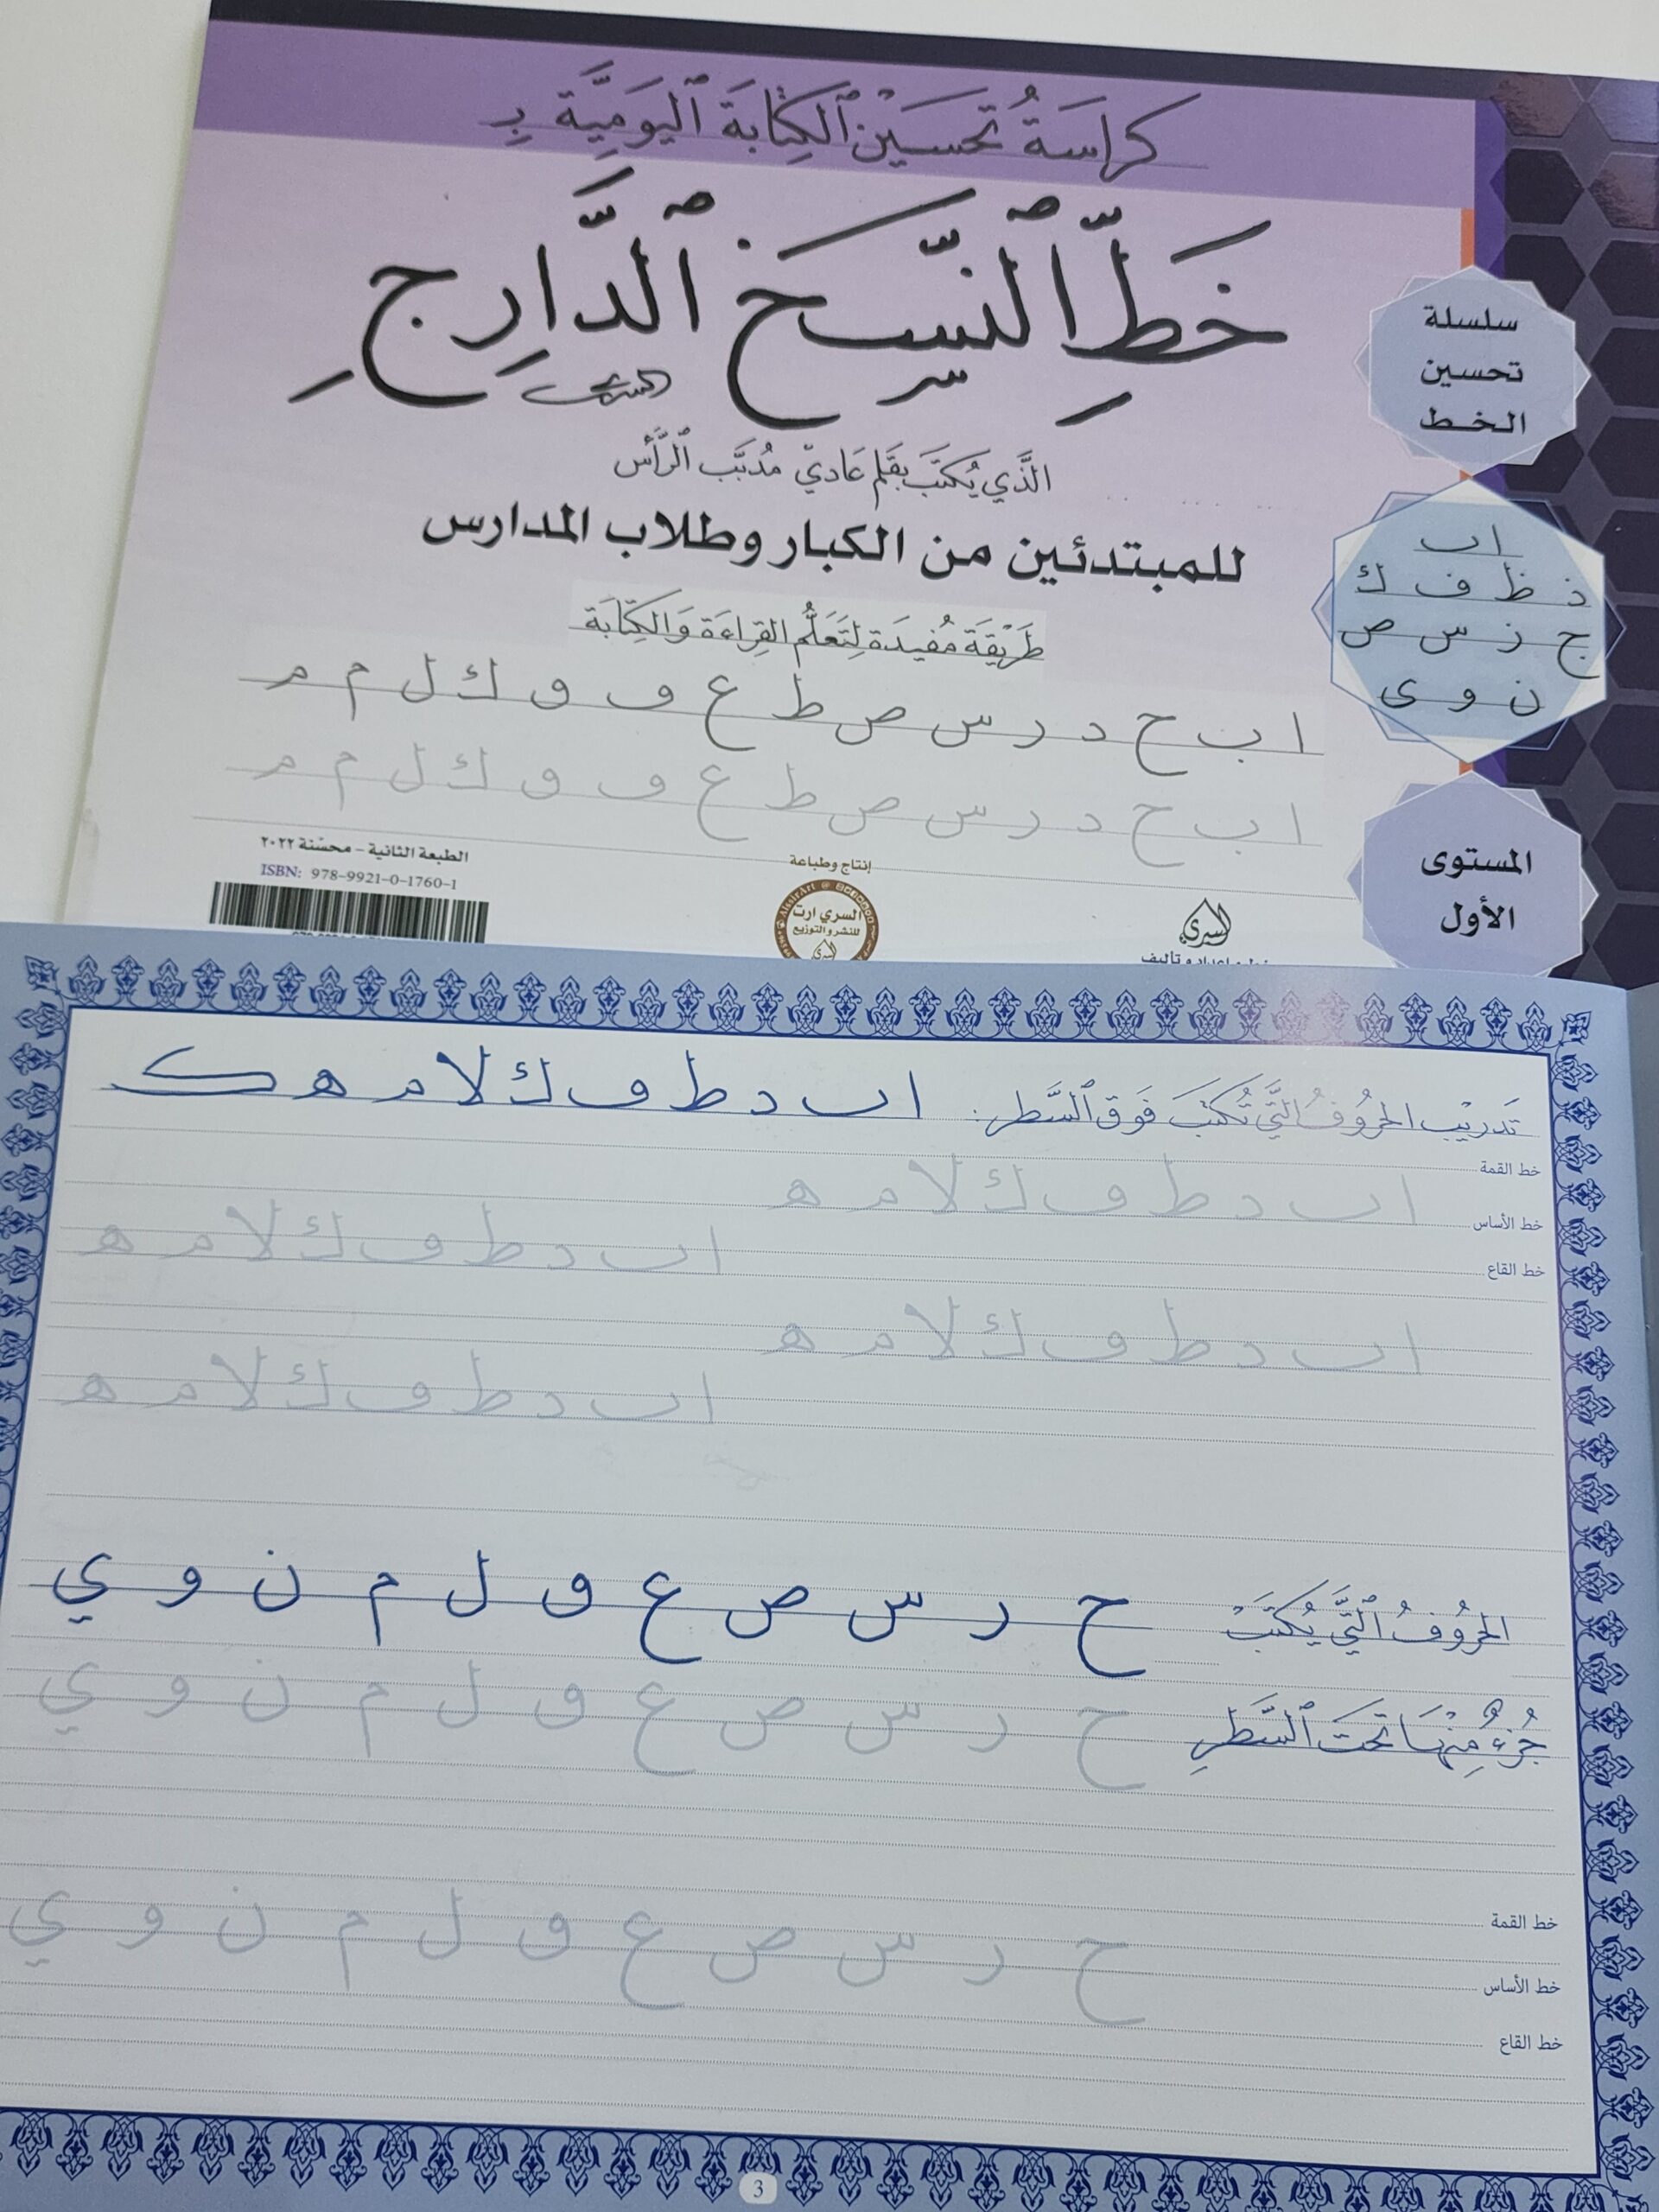 كراسَةُ تَحسَين ٱلكِتابَة ٱليَومِيَّة بِـ
خَطِّ ٱلنَّسِخ ٱلدَّارِجِ
السري
الَّذي يُكتَب بِقَلم عَاديّ مُدَبَّب ٱلرَّأس
للمبتدئين من الكبار وطلاب المدارس
طَريقَة مُفيدَة لِتَعَلُّم القِراءَة وَالكِتَابَة
ا ب ح د ر س ص ط ع ف ق ك ل م م
ا ب ح د ر س ص ط ع ف ق ك ل م م
سلسلة
تحسين
الخط
ا ب
ذ ظ ف ك
ج ز س ص
ن و ى
المستوى
الأول
الطبعة الثانية – محسّنة ٢٠٢٢
ISBN: 978-9921-0-1760-1
إنتاج وطباعة
السري ارت
للنشر والتوزيع
السري
تَدريب الحُروُفُ الَّتي تُكتَب فَوق ٱلسَّطر : ا ب د ط ف ك لا م ه ك
خط القمة
ا ب د ط ف ك لا م ه
خط الأساس
ا ب د ط ف ك لا م ه
خط القاع
ا ب د ط ف ك لا م ه
ا ب د ط ف ك لا م ه
الحُروُفُ ٱلَّتي يُكتَبَ ح ر س ص ع ق ل م ن و ي
جُزءٌ مِنْهَا تَحتَ ٱلسَّطرِ ح ر س ص ع ق ل م ن و ي
خط القمة
ح ر س ص ع ق ل م ن و ي
خط الأساس
خط القاع
3